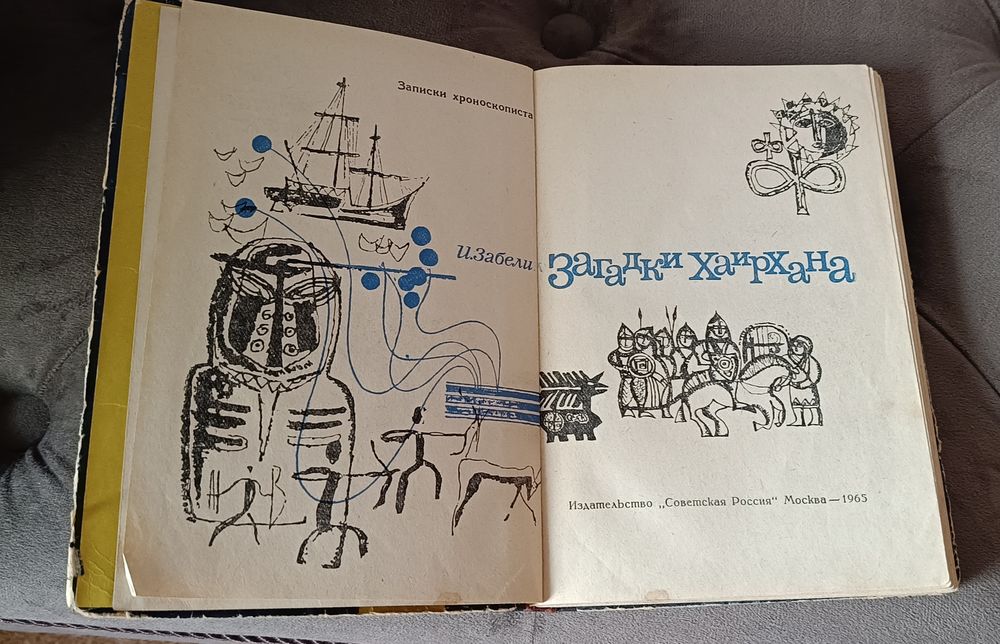 Записки хроноскописта
И. Забелин
Загадки Хаирхана
Издательство „Советская Россия" Москва — 1965